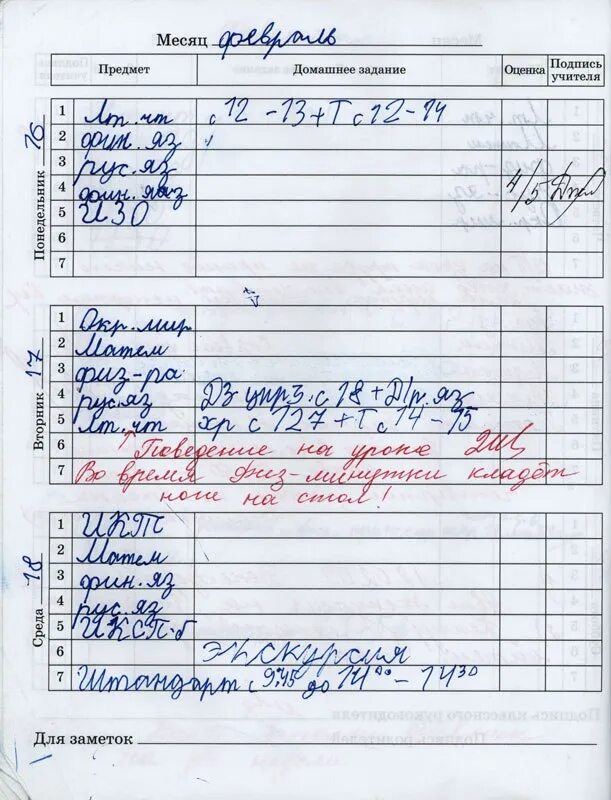 Месяц февраль
Предмет Домашнее задание Оценка Подпись учителя
Понедельник 16
1 Лт.чт с 12-13+Т с 12-14
2 фин.яз
3 рус.яз
4 фин.яз 4/5
5 ИЗО
6
7
Вторник 17
1 Окр.мир
2 Матем
3 физ-ра
4 рус.яз ДЗ упр 3. с 18 + Д/р.яз
5 Лт.чт хр с 127 + Т с 14-15
6 ↑ Поведение на уроке
7 Во время физ-минутки кладёт
ноги на стол!
Среда 18
1 ИКТ
2 Матем
3 фин.яз
4 рус.яз
5 ИКСП-б
6 экскурсия
7 Штандарт с 9:45 до 14⁰⁰ - 14³⁰
Для заметок